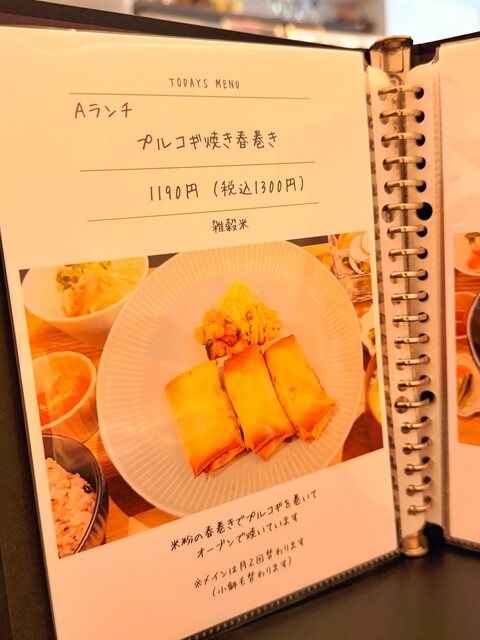 TODAYS MENU
Aランチ
プルコギ焼き春巻き
1190円 (税込1300円)
雑穀米
米粉の春巻きでプルコギを巻いて
オーブンで焼いています
※メインは月2回替わります
(小鉢も替わります)